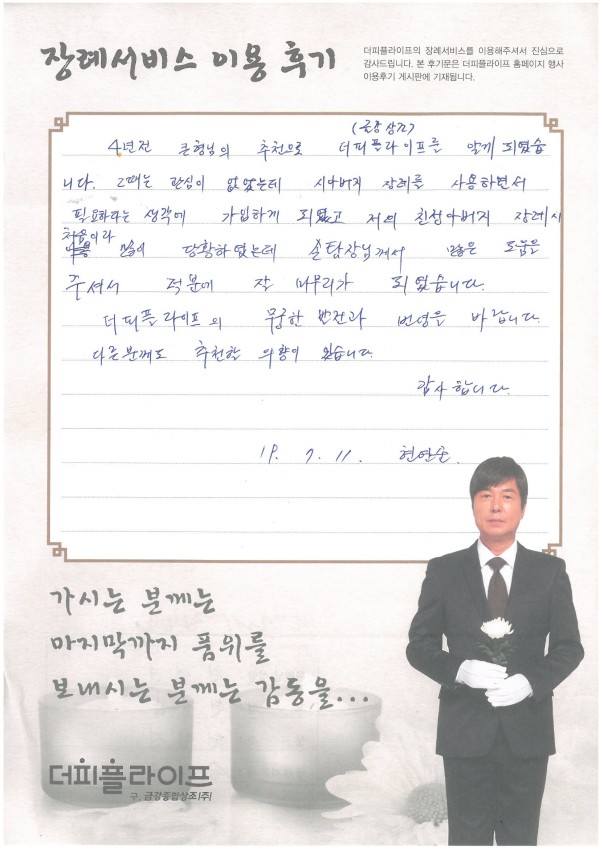 장례서비스 이용 후기
더피플라이프의 장례서비스를 이용해주셔서 진심으로
감사드립니다. 본 후기문은 더피플라이프 홈페이지 행사
이용후기 게시판에 기재됩니다.
(금강상조)
4년전 큰형님의 추천으로 더피플라이프를 알게 되었습
니다. 그때는 관심이 없었는데 시아버지 장례를 사용하면서
필요하다는 생각에 가입하게 되었고 저의 친정아버지 장례시
처음이라
많이 당황하였는데 손팀장님께서 많은 도움을
주셔서 덕분에 잘 마무리가 되었습니다.
더피플라이프의 무궁한 발전과 번영을 바랍니다.
다른분께도 추천할 의향이 있습니다.
감사합니다.
19. 7. 11. 현연순
가시는 분께는
마지막까지 품위를
보내시는 분께는 감동을...
더피플라이프
구. 금강종합상조(주)